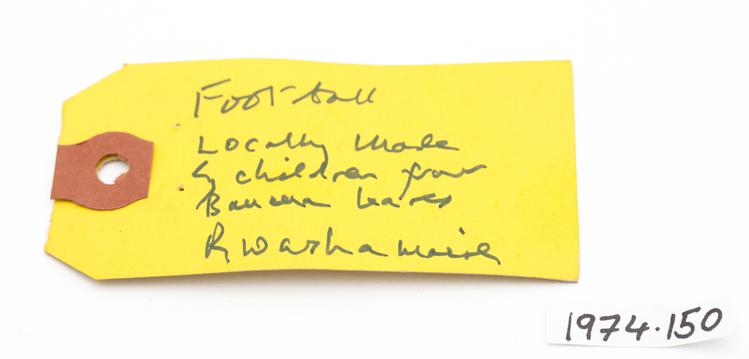 Football
Locally Made
by children from
Banana leaves
1974.150